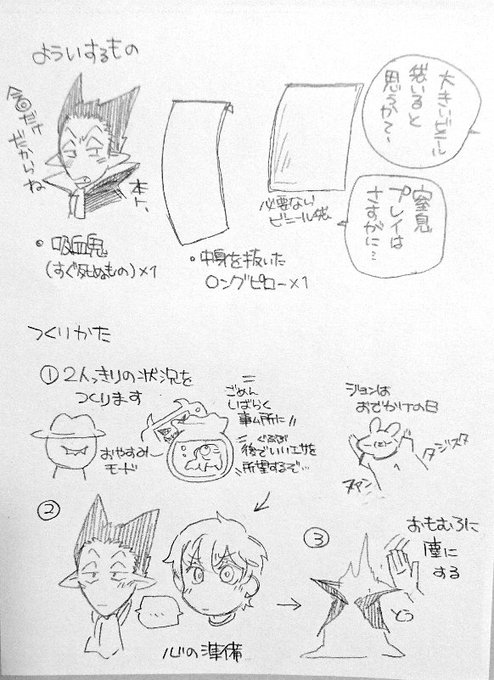 よういするもの
今回だけ
だからね
本ト、
・吸血鬼
(すぐ死ぬもの)×1
・中身を抜いた
ロングピロー×1
必要ない
ビニール袋
大きいビニール
袋いると
思うかて、
窒息
プレイは
さすがに…
つくりかた
①2人っきりの状況を
つくります
おやすみ
モード
ごめん
しばらく
事ム所に!!
ぐるるが
後でいいエサを
所望するで…
ジョンは
おでかけの日
フットサル
ヌァン
②
…
心の準備
③
おもむろに
塵に
する
とう